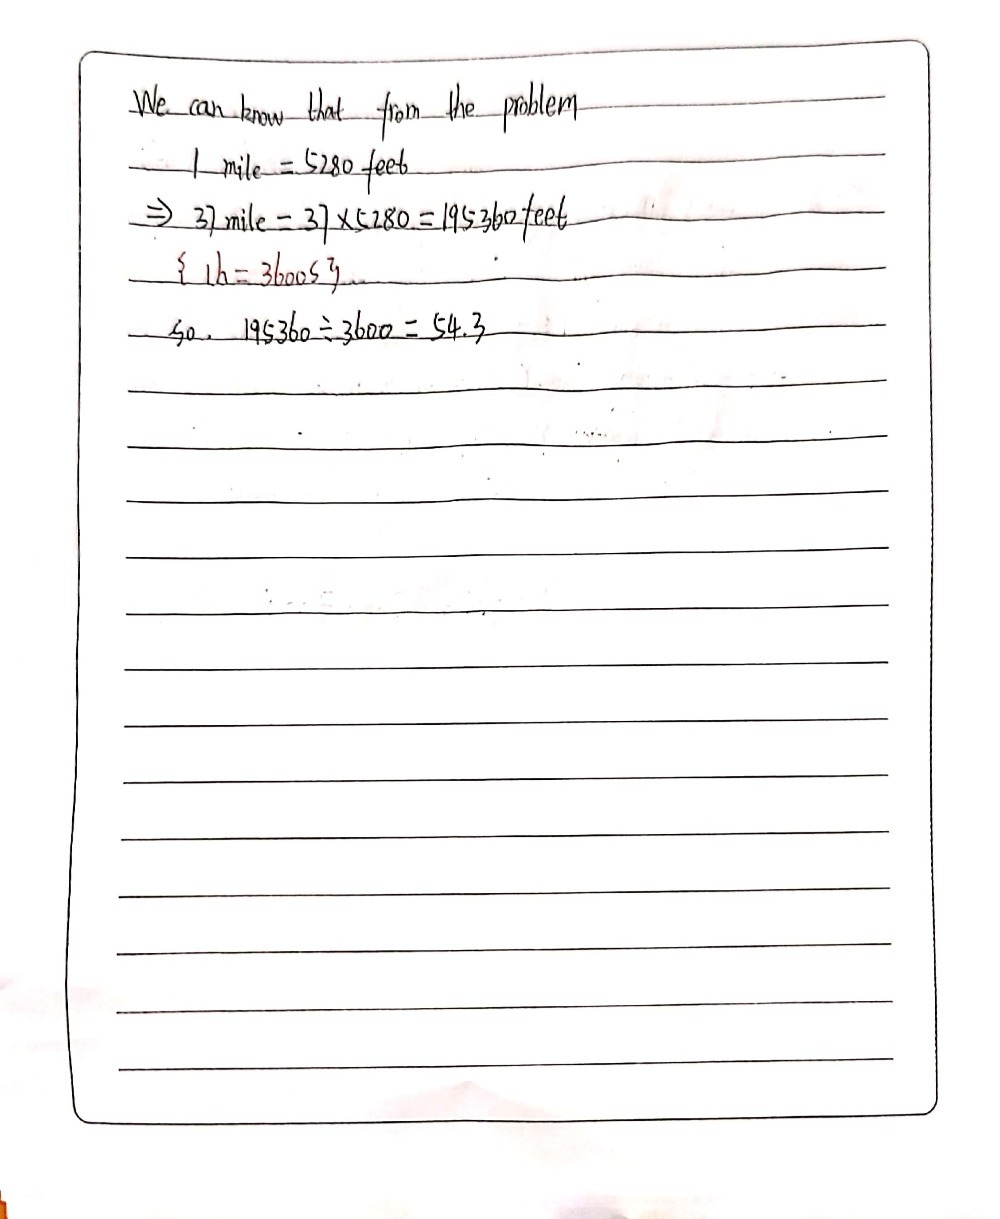 We can know that from the problem
1 mile = 5280 feet
⇒ 37 mile = 37 × 5280 = 195360 feet
{ 1h = 3600s }
so. 195360 ÷ 3600 = 54.3